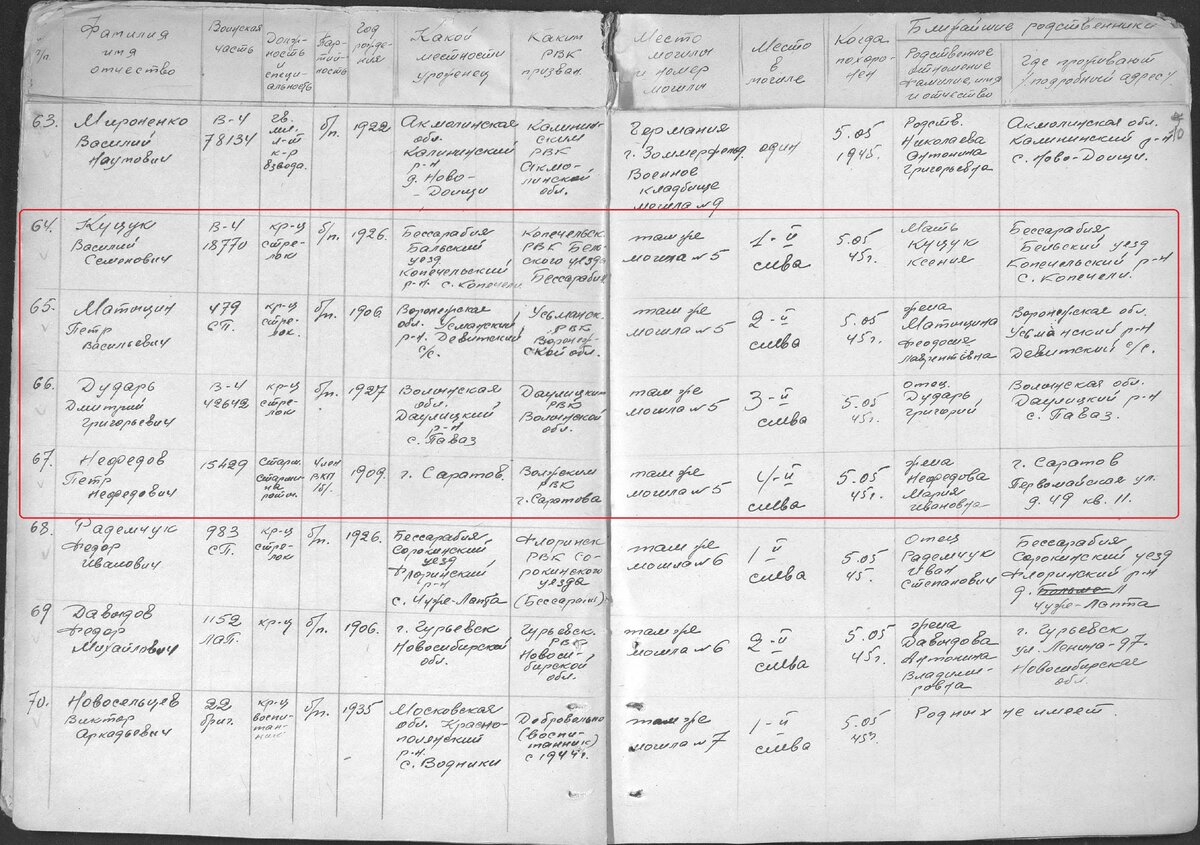 № п/п.
Фамилия имя отчество
Воинская часть
Долж- ность и специ- альность
Пар- тий- ность
Год рожде- ния
Какой местности уроженец
Каким РВК призван
Место могилы и номер могилы
Место в могиле
Когда похоро- нен
Ближайшие родственники
Родственное отношение фамилие, имя и отчество
Где проживают /подробный адрес/
63. Мироненко Василий Наумович
В-ч 78134
гв. мл. л-т к-р взвода.
б/п.
1922
Акмолинская обл. Калининский р-н д. Ново-
Калинин- ским РВК Акмо- линской обл.
Германия г. Зоммерфельд Военное кладбище могила №9
один
5.05 1945г.
Родств. Николаева Антонина Григорьевна
Акмолинская обл. Калининский р-н
64. Куцук Василий Семенович
В-ч 18770
кр-ц стре- лок
б/п.
1926.
Бессарабия Бальский уезд Копечельский р-н. с. Копечели
Копечельск. РВК Бель- ского уезда Бессарабия
там же могила №5
1-й слева
5.05 45г.
Мать Куцук Ксения
Бессарабия Бельский уезд Копечельский р-н с. Копечели.
65. Матюшин Петр Васильевич
479 СП.
кр-ц стре- лок.
б/п.
1906
Воронежская обл. Усманский р-н. Девитский с/с.
Усьманск. РВК Воронеж- ской обл.
там же могила №5
2-й слева
5.05 45г.
жена Феодосия Лаврентьевна
Воронежская обл. Усьманский р-н Девитский с/с.
66. Дударь Дмитрий Григорьевич
В-ч 42642
кр-ц стре- лок
б/п.
1927
Волынская обл. Даулицкий р-н с. Паваз
Даулицким РВК Волынской обл.
там же могила №5
3-й слева
5.05 45г.
Отец Дударь Григорий
Волынская обл. Даулицкий р-н с. Паваз.
67. Нефедов Петр Нефедович
15429
Старш. Старши- на роты.
Член ВКП /б/.
1909.
г. Саратов.
Волжским РВК г. Саратова
там же могила №5
4-й слева
5.05 45г.
жена Нефедова Мария Ивановна
г. Саратов Первомайская ул. д. 49 кв. 11.
68. Радемчук Федор Иванович
983 СП.
кр-ц стре- лок
б/п.
1926.
Бессарабия Сорокинский уезд Флоринский р-н с. Чуже-Лапта
Флоринск РВК Со- рокинского уезда (Бессараб.)
там же могила №6
1-й слева
5.05 45г.
Отец Радемчук Иван Степанович
Бессарабия Сорокинский уезд Флоринский р-н д. Чуже-Лапта
69 Давыдов Федор Михайлович
1152 ЛАП.
кр-ц
б/п.
1906.
г. Гурьевск Новосибирской обл.
Гурьевск. РВК Новоси- бирской обл.
там же могила №6
2-й слева
5.05 45г.
жена Давыдова Антонина Владими- ровна
г. Гурьевск ул. Ленина-97. Новосибирская обл.
70. Новосельцев Виктор Аркадьевич
22 бриг.
кр-ц воспи- тан- ник
б/п.
1935
Московская обл. Красно- полянский р-н. с. Водники
Добровольно (воспи- танник) с 1944г.
там же могила №7
1-й слева
5.05 45г.
Родных не имеет.